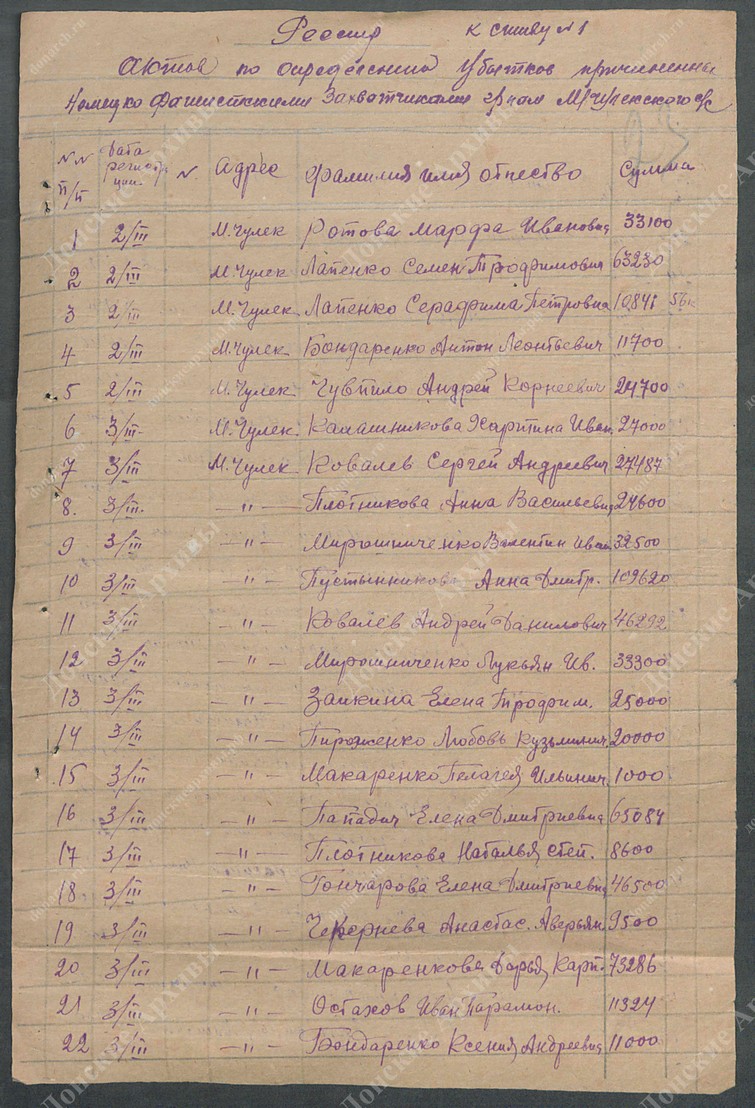 Реестр к списку №1
Актов по определению убытков причиненных
Немецко Фашистскими Захватчиками гр-нам М/Чулекского с/с
NN п/п Дата регистрации N. Адрес Фамилия имя отчество Сумма
1 2/III М.Чулек Ротова Марфа Ивановна 33100
2 2/III М.Чулек Лапенко Семен Трофимович 63230
3 2/III М.Чулек Лапенко Серафима Петровна 10841 56к
4 2/III М.Чулек Бондаренко Антон Леонтьевич 11700
5 2/III М.Чулек Чувпило Андрей Корнеевич 24700
6 3/III М.Чулек Калашникова Харитина Иван. 27000
7 3/III М.Чулек Ковалев Сергей Андреевич 27487
8. 3/III. —"— Плотникова Анна Васильевна 24600
9 3/III —"— Мирошниченко Валентин Иван 32500
10 3/III —"— Пустынникова Анна Дмитр. 109620
11 3/III —"— Ковалев Андрей Данилович 46292
12 3/III —"— Мирошниченко Лукьян Ив. 33300
13 3/III —"— Заикина Елена Трофим. 25000
14 3/III —"— Пироженко Любовь Кузьминич. 20000
15 3/III —"— Макаренко Пелагея Ильинич. 1000
16 3/III —"— Пападич Елена Дмитриевна 65084
17 3/III —"— Плотникова Наталья Степ. 8600
18. 3/III —"— Гончарова Елена Дмитриевна 46500
19 3/III —"— Анастас. Аверьян 9500
20 3/III —"— Макаренкова Дарья Карп. 73286
21 3/III —"— Остахов Иван Парамон. 11324
22 3/III —"— Бондаренко Ксения Андреевна 11000